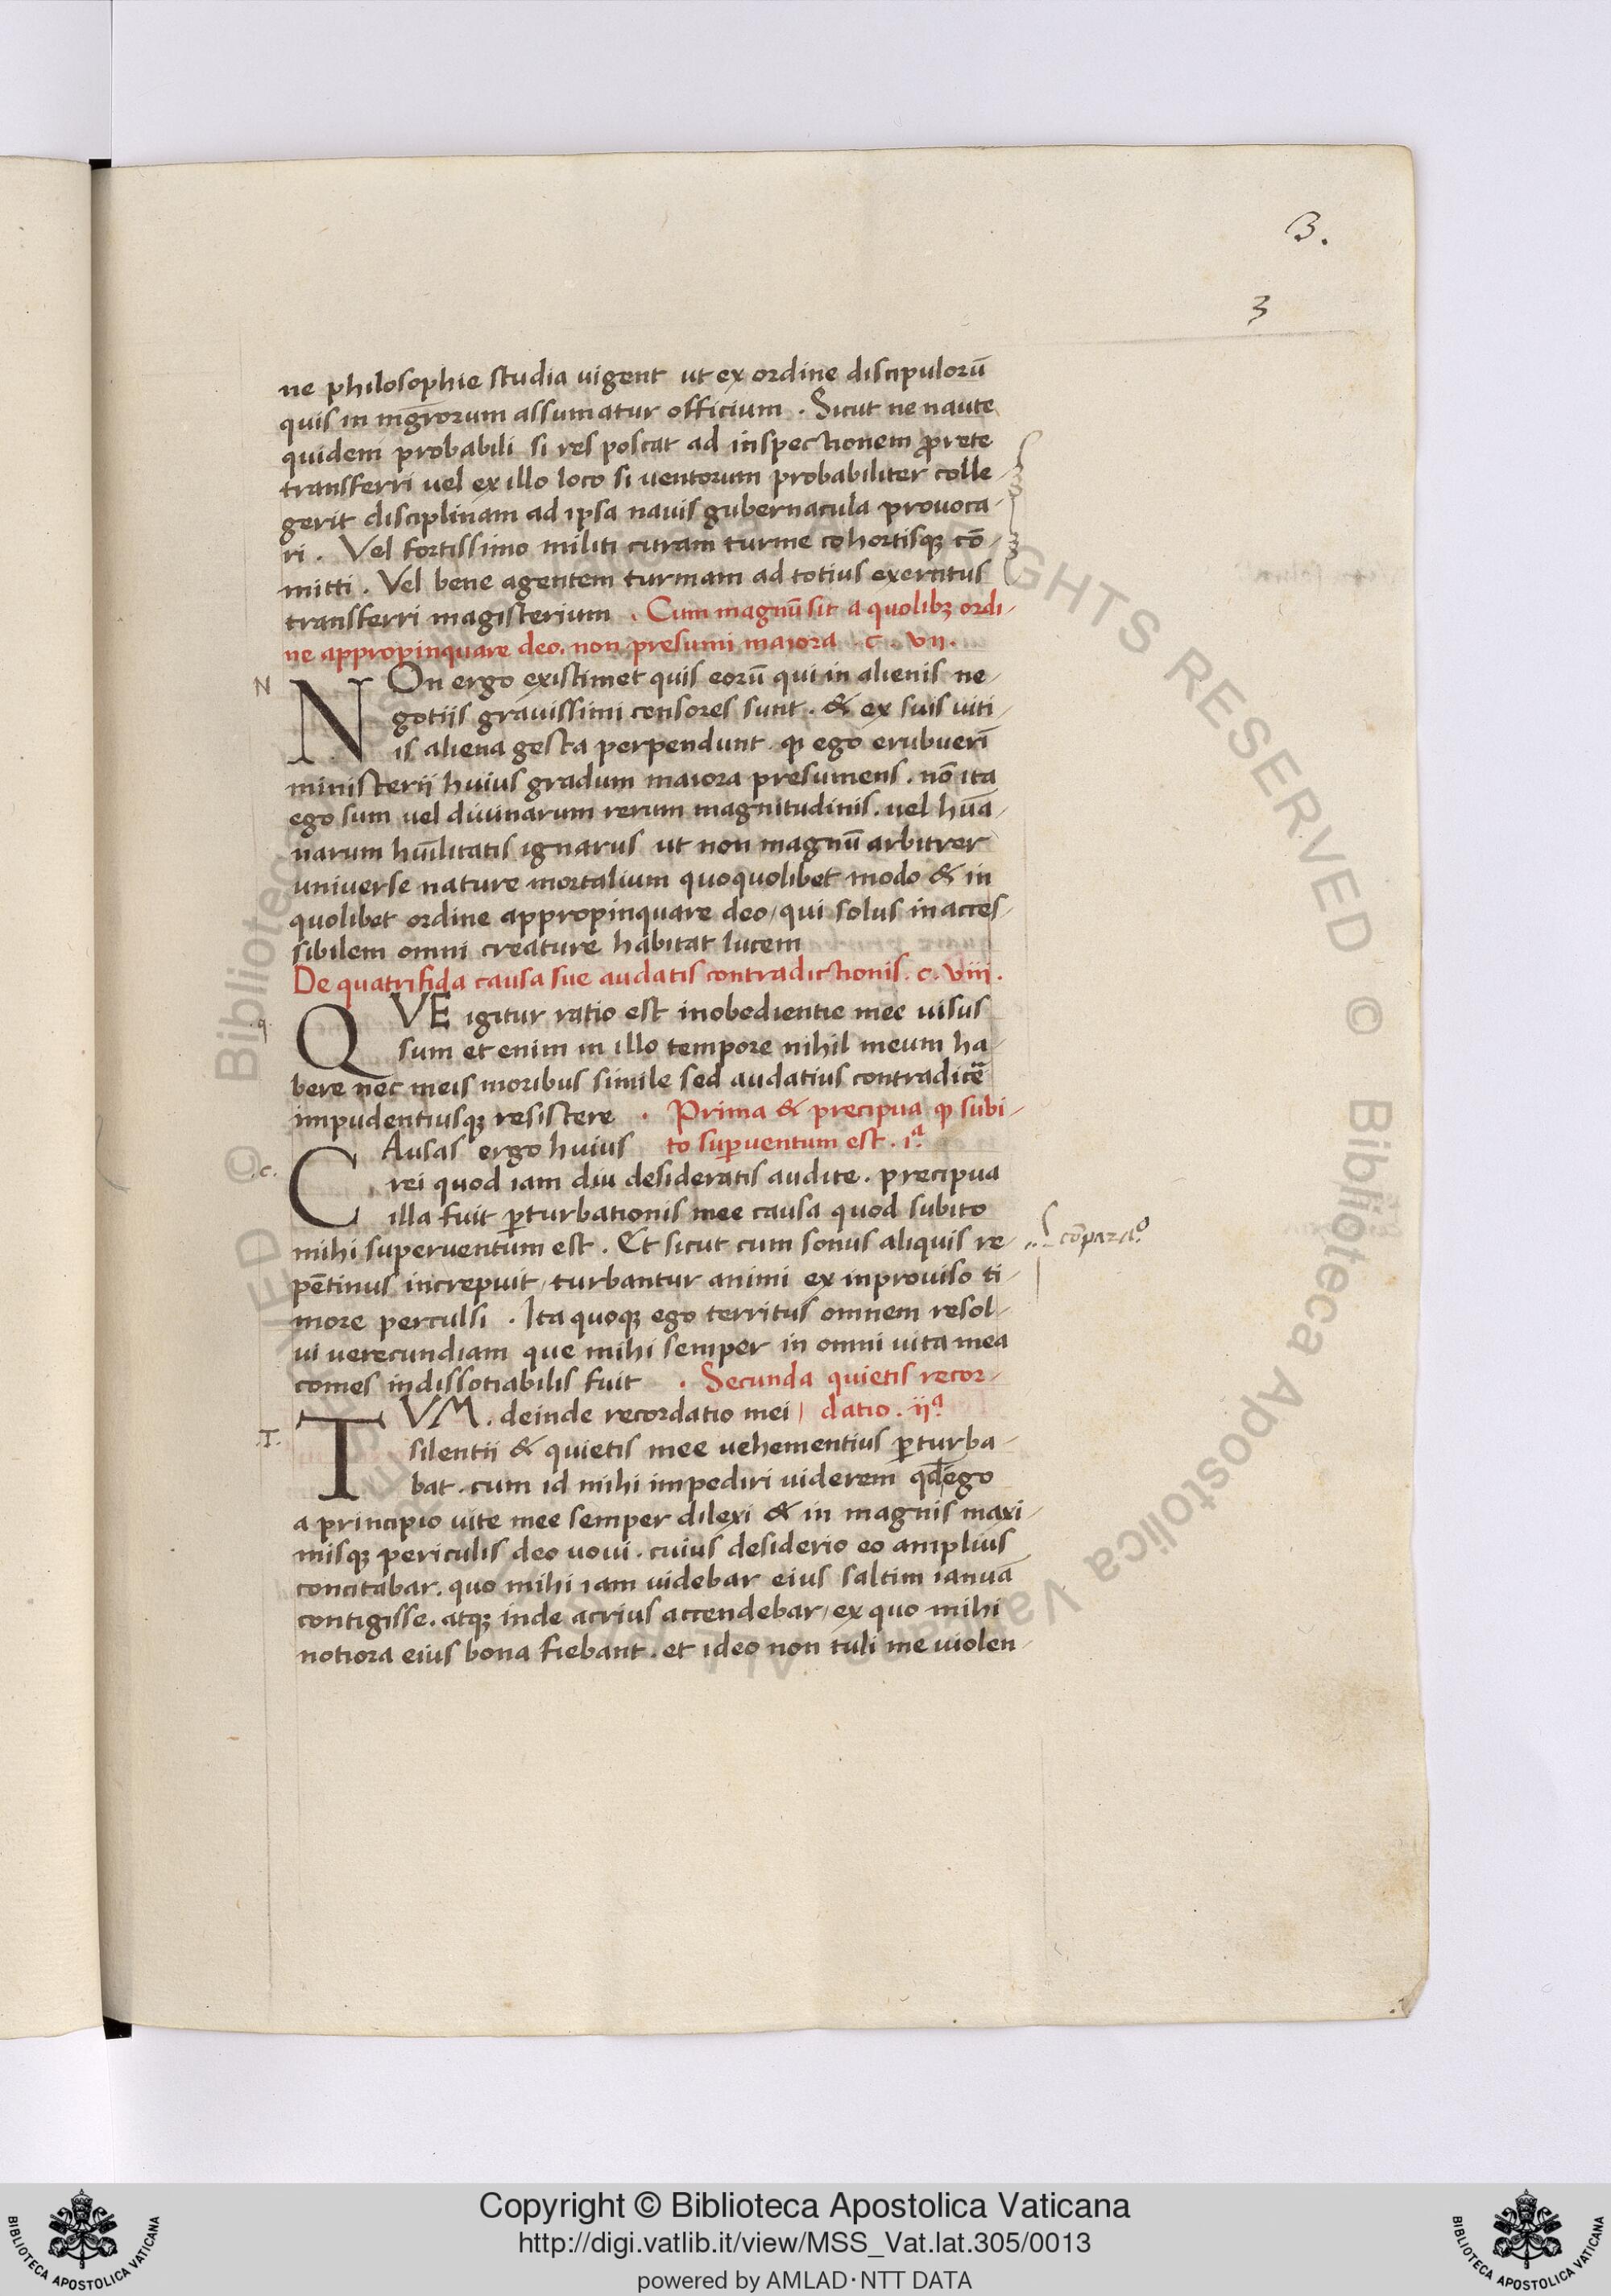 3.
3
ne philosophie studia uigent ut ex ordine discipulorū
quis in mḡrorum assumatur officium . Sicut ne naute
quidem probabili si res poscat ad inspectionem ꝓrete
transferri uel ex illo loco si uentorum probabiliter colle-
gerit disciplinam ad ipsa nauis gubernacula prouoca-
ri . Vel fortissimo militi curam turme cohortisqꝫ cō-
mitti . Vel bene agentem turmam ad totius exercitus
transferri magisterium . Cum magnū sit a quolibꝫ ordi-
ne appropinquare deo. non presumi maiora . c . vij.
N
NOn ergo existimet quis eorū qui in alienis ne-
gotijs grauissimi censores sunt . & ex suis uiti-
is aliena gesta perpendunt . ꝙ ego erubuerī
ministerij huius gradum maiora presumens . nō ita
ego sum uel diuinarum rerum magnitudinis . uel huā-
narum hūilitatis ignarus ut non magnū arbitrer
uniuerse nature mortalium quoquolibet modo & in
quolibet ordine appropinquare deo, qui solus inacces-
sibilem omni creature habitat lucem
De quatrifida causa sue audatis contradictionis . c. viii.
.q.
QVE igitur ratio est inobedientie mee uisus
sum et enim in illo tempore nihil meum ha-
bere nec meis moribus simile sed audatius contradicē
impudentiusqꝫ resistere . Prima & precipua ꝙ subi-
CAusas ergo huius to suꝑuentum est . iª
.c.
rei quod iam diu desideratis audite . precipua
illa fuit ꝑturbationis mee causa quod subito
mihi superuentum est . Et sicut cum sonus aliquis re-
cōparaº
pētinus increpuit, turbantur animi ex inprouiso ti-
more perculsi . Ita quoqꝫ ego territus omnem resol-
ui uerecundiam que mihi semper in omni uita mea
comes indissotiabilis fuit . Secunda quietis recor-
TVM . deinde recordatio mei datio . ijª
.T.
silentij & quietis mee uehementius ꝑturba-
bat . cum id mihi impediri uiderem qd ego
a principio uite mee semper dilexi & in magnis maxi-
misqꝫ periculis deo uoui . cuius desiderio eo amplius
concitabar . quo mihi iam uidebar eius saltim ianuā
contigisse . atqꝫ inde acrius accendebar, ex quo mihi
notiora eius bona fiebant . et ideo non tuli me uiolen-
Copyright © Biblioteca Apostolica Vaticana
http://digi.vatlib.it/view/MSS_Vat.lat.305/0013
powered by AMLAD·NTT DATA
BIBLIOTECA APOSTOLICA VATICANA
BIBLIOTECA APOSTOLICA VATICANA